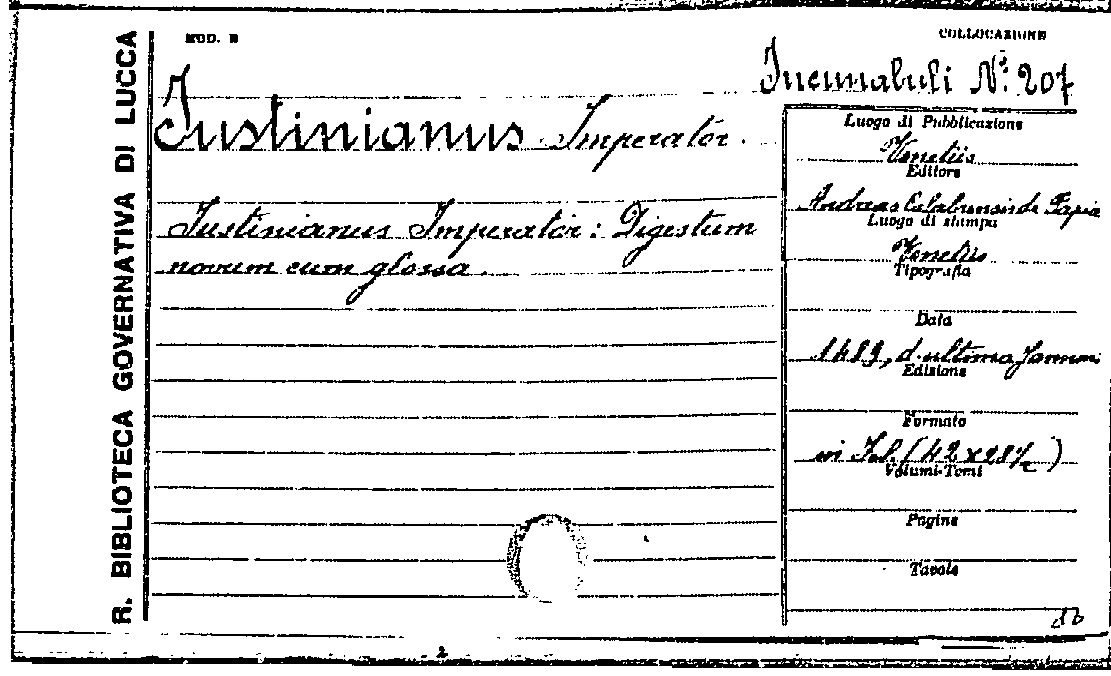 R. BIBLIOTECA GOVERNATIVA DI LUCCA
MOD. B
COLLOCAZIONE
Incunabuli N.º 207
Iustinianus Imperator.
Iustinianus Imperator: Digestum
novum cum glossa.
Luogo di Pubblicazione
Venetiis
Editore
Andreas Calabrensis de Papia
Luogo di stampa
Venetiis
Tipografia
Data
1489, d. ultima Januarii
Edizione
Formato
in Fol. (42x28½)
Volumi-Tomi
Pagine
Tavole
2